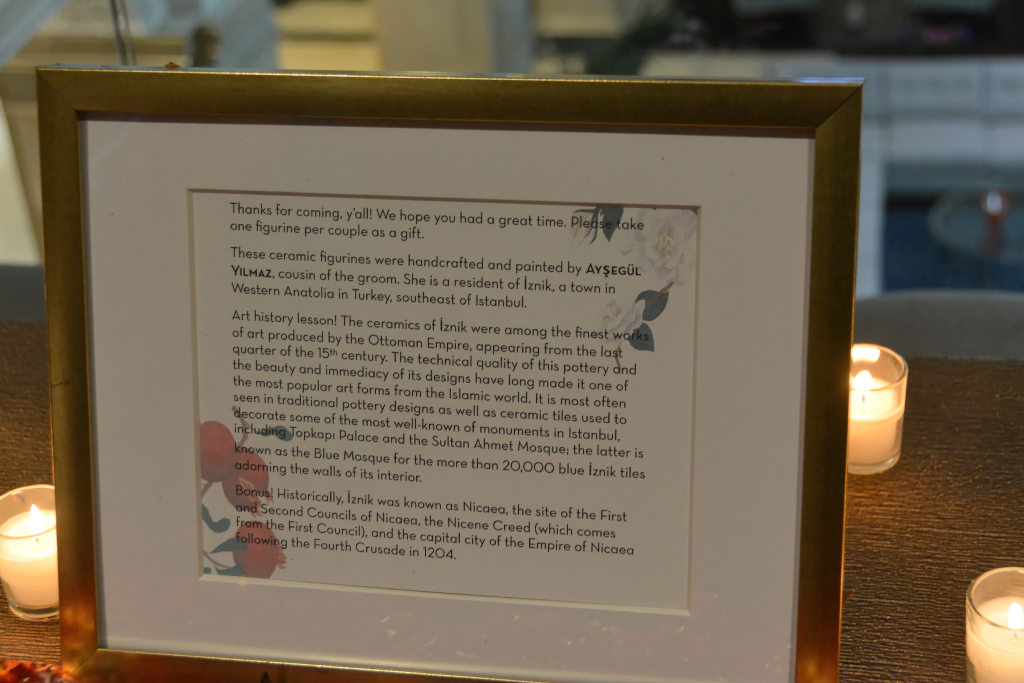 Thanks for coming, y'all! We hope you had a great time. Please take
one figurine per couple as a gift.
These ceramic figurines were handcrafted and painted by AYŞEGÜL
YILMAZ, cousin of the groom. She is a resident of İznik, a town in
Western Anatolia in Turkey, southeast of Istanbul.
Art history lesson! The ceramics of İznik were among the finest works
of art produced by the Ottoman Empire, appearing from the last
quarter of the 15th century. The technical quality of this pottery and
the beauty and immediacy of its designs have long made it one of
the most popular art forms from the Islamic world. It is most often
seen in traditional pottery designs as well as ceramic tiles used to
decorate some of the most well-known of monuments in Istanbul,
including Topkapı Palace and the Sultan Ahmet Mosque; the latter is
known as the Blue Mosque for the more than 20,000 blue İznik tiles
adorning the walls of its interior.
Bonus! Historically, İznik was known as Nicaea, the site of the First
and Second Councils of Nicaea, the Nicene Creed (which comes
from the First Council), and the capital city of the Empire of Nicaea
following the Fourth Crusade in 1204.